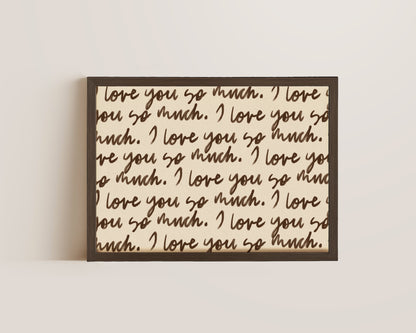 I love you so much. I love y
ou so much. I love you so
much. I love you so much.
ve you so much. I love you
o much. I love you so mu
I love you so much. I love
you so much. I love you so
much. I love you so much.